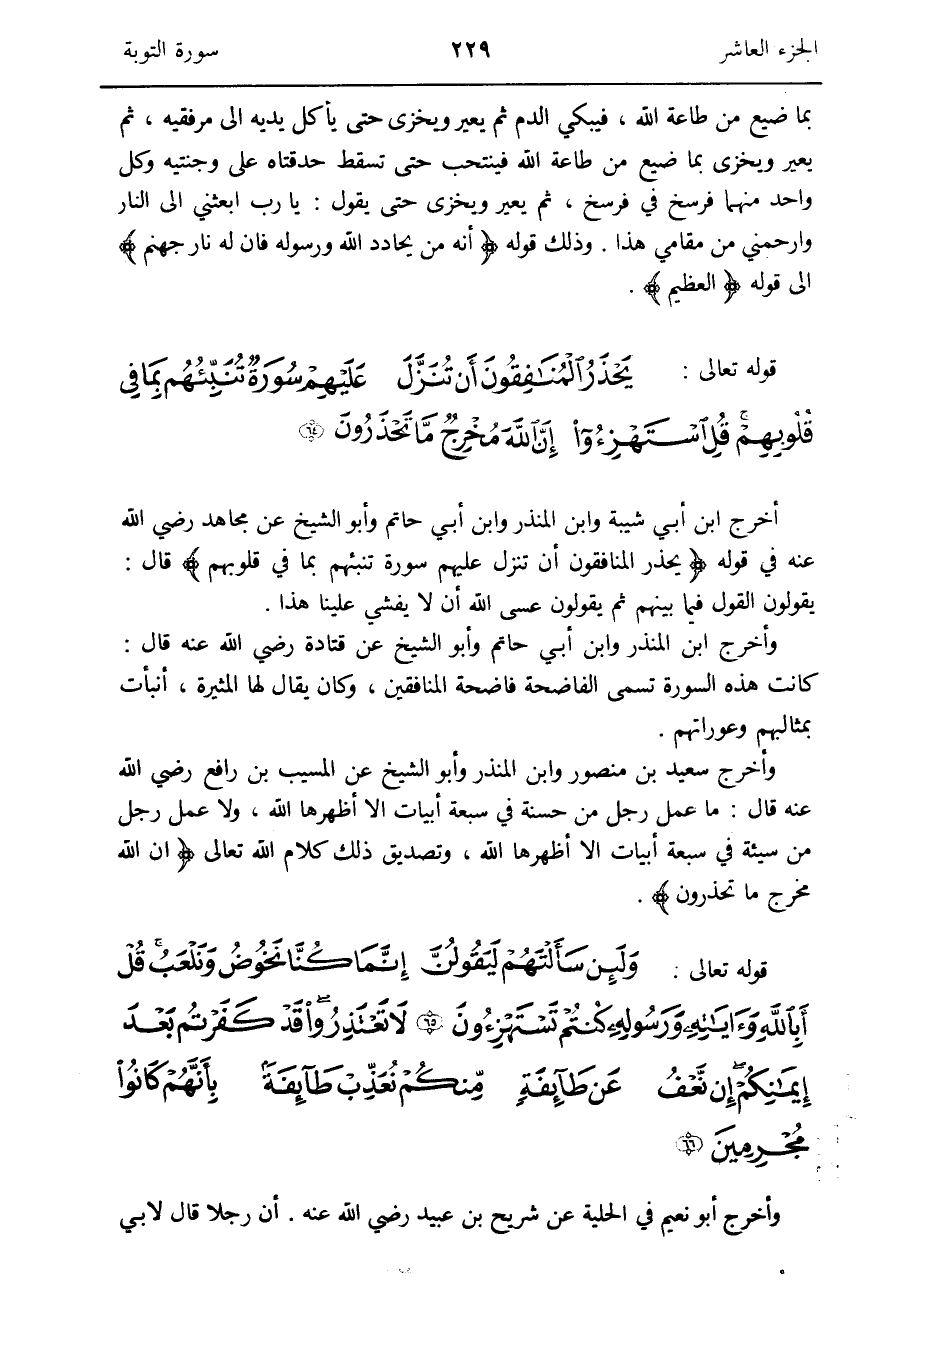 الجزء العاشر ٢٢٩ سورة التوبة
بما ضيع من طاعة الله ، فيبكي الدم ثم يعير ويخزى حتى يأكل يديه الى مرفقيه ، ثم
يعير ويخزى بما ضيع من طاعة الله فينتحب حتى تسقط حدقتاه على وجنتيه وكل
واحد منهما فرسخ في فرسخ ، ثم يعير ويخزى حتى يقول : يا رب ابعثني الى النار
وارحمني من مقامي هذا . وذلك قوله ﴿ أنه من يحادد الله ورسوله فان له نار جهنم ﴾
الى قوله ﴿ العظيم ﴾ .
قوله تعالى : يَحْذَرُ ٱلْمُنَٰفِقُونَ أَن تُنَزَّلَ عَلَيْهِمْ سُورَةٌ تُنَبِّئُهُم بِمَا فِى
قُلُوبِهِمْ ۚ قُلِ ٱسْتَهْزِءُوٓا۟ إِنَّ ٱللَّهَ مُخْرِجٌ مَّا تَحْذَرُونَ ٦٤
أخرج ابن أبي شيبة وابن المنذر وابن أبي حاتم وأبو الشيخ عن مجاهد رضي الله
عنه في قوله ﴿ يحذر المنافقون أن تنزل عليهم سورة تنبئهم بما في قلوبهم ﴾ قال :
يقولون القول فيما بينهم ثم يقولون عسى الله أن لا يفشي علينا هذا .
وأخرج ابن المنذر وابن أبي حاتم وأبو الشيخ عن قتادة رضي الله عنه قال :
كانت هذه السورة تسمى الفاضحة فاضحة المنافقين ، وكان يقال لها المثيرة ، أنبأت
بمثالبهم وعوراتهم .
وأخرج سعيد بن منصور وابن المنذر وأبو الشيخ عن المسيب بن رافع رضي الله
عنه قال : ما عمل رجل من حسنة في سبعة أبيات الا أظهرها الله ، ولا عمل رجل
من سيئة في سبعة أبيات الا أظهرها الله ، وتصديق ذلك كلام الله تعالى ﴿ ان الله
مخرج ما تحذرون ﴾ .
قوله تعالى : وَلَئِن سَأَلْتَهُمْ لَيَقُولُنَّ إِنَّمَا كُنَّا نَخُوضُ وَنَلْعَبُ ۚ قُلْ
أَبِٱللَّهِ وَءَايَٰتِهِۦ وَرَسُولِهِۦ كُنتُمْ تَسْتَهْزِءُونَ ٦٥ لَا تَعْتَذِرُوا۟ قَدْ كَفَرْتُم بَعْدَ
إِيمَٰنِكُمْ ۚ إِن نَّعْفُ عَن طَآئِفَةٍ مِّنكُمْ نُعَذِّبْ طَآئِفَةًۢ بِأَنَّهُمْ كَانُوا۟
مُجْرِمِينَ ٦٦
وأخرج أبو نعيم في الحلية عن شريح بن عبيد رضي الله عنه . أن رجلا قال لابي